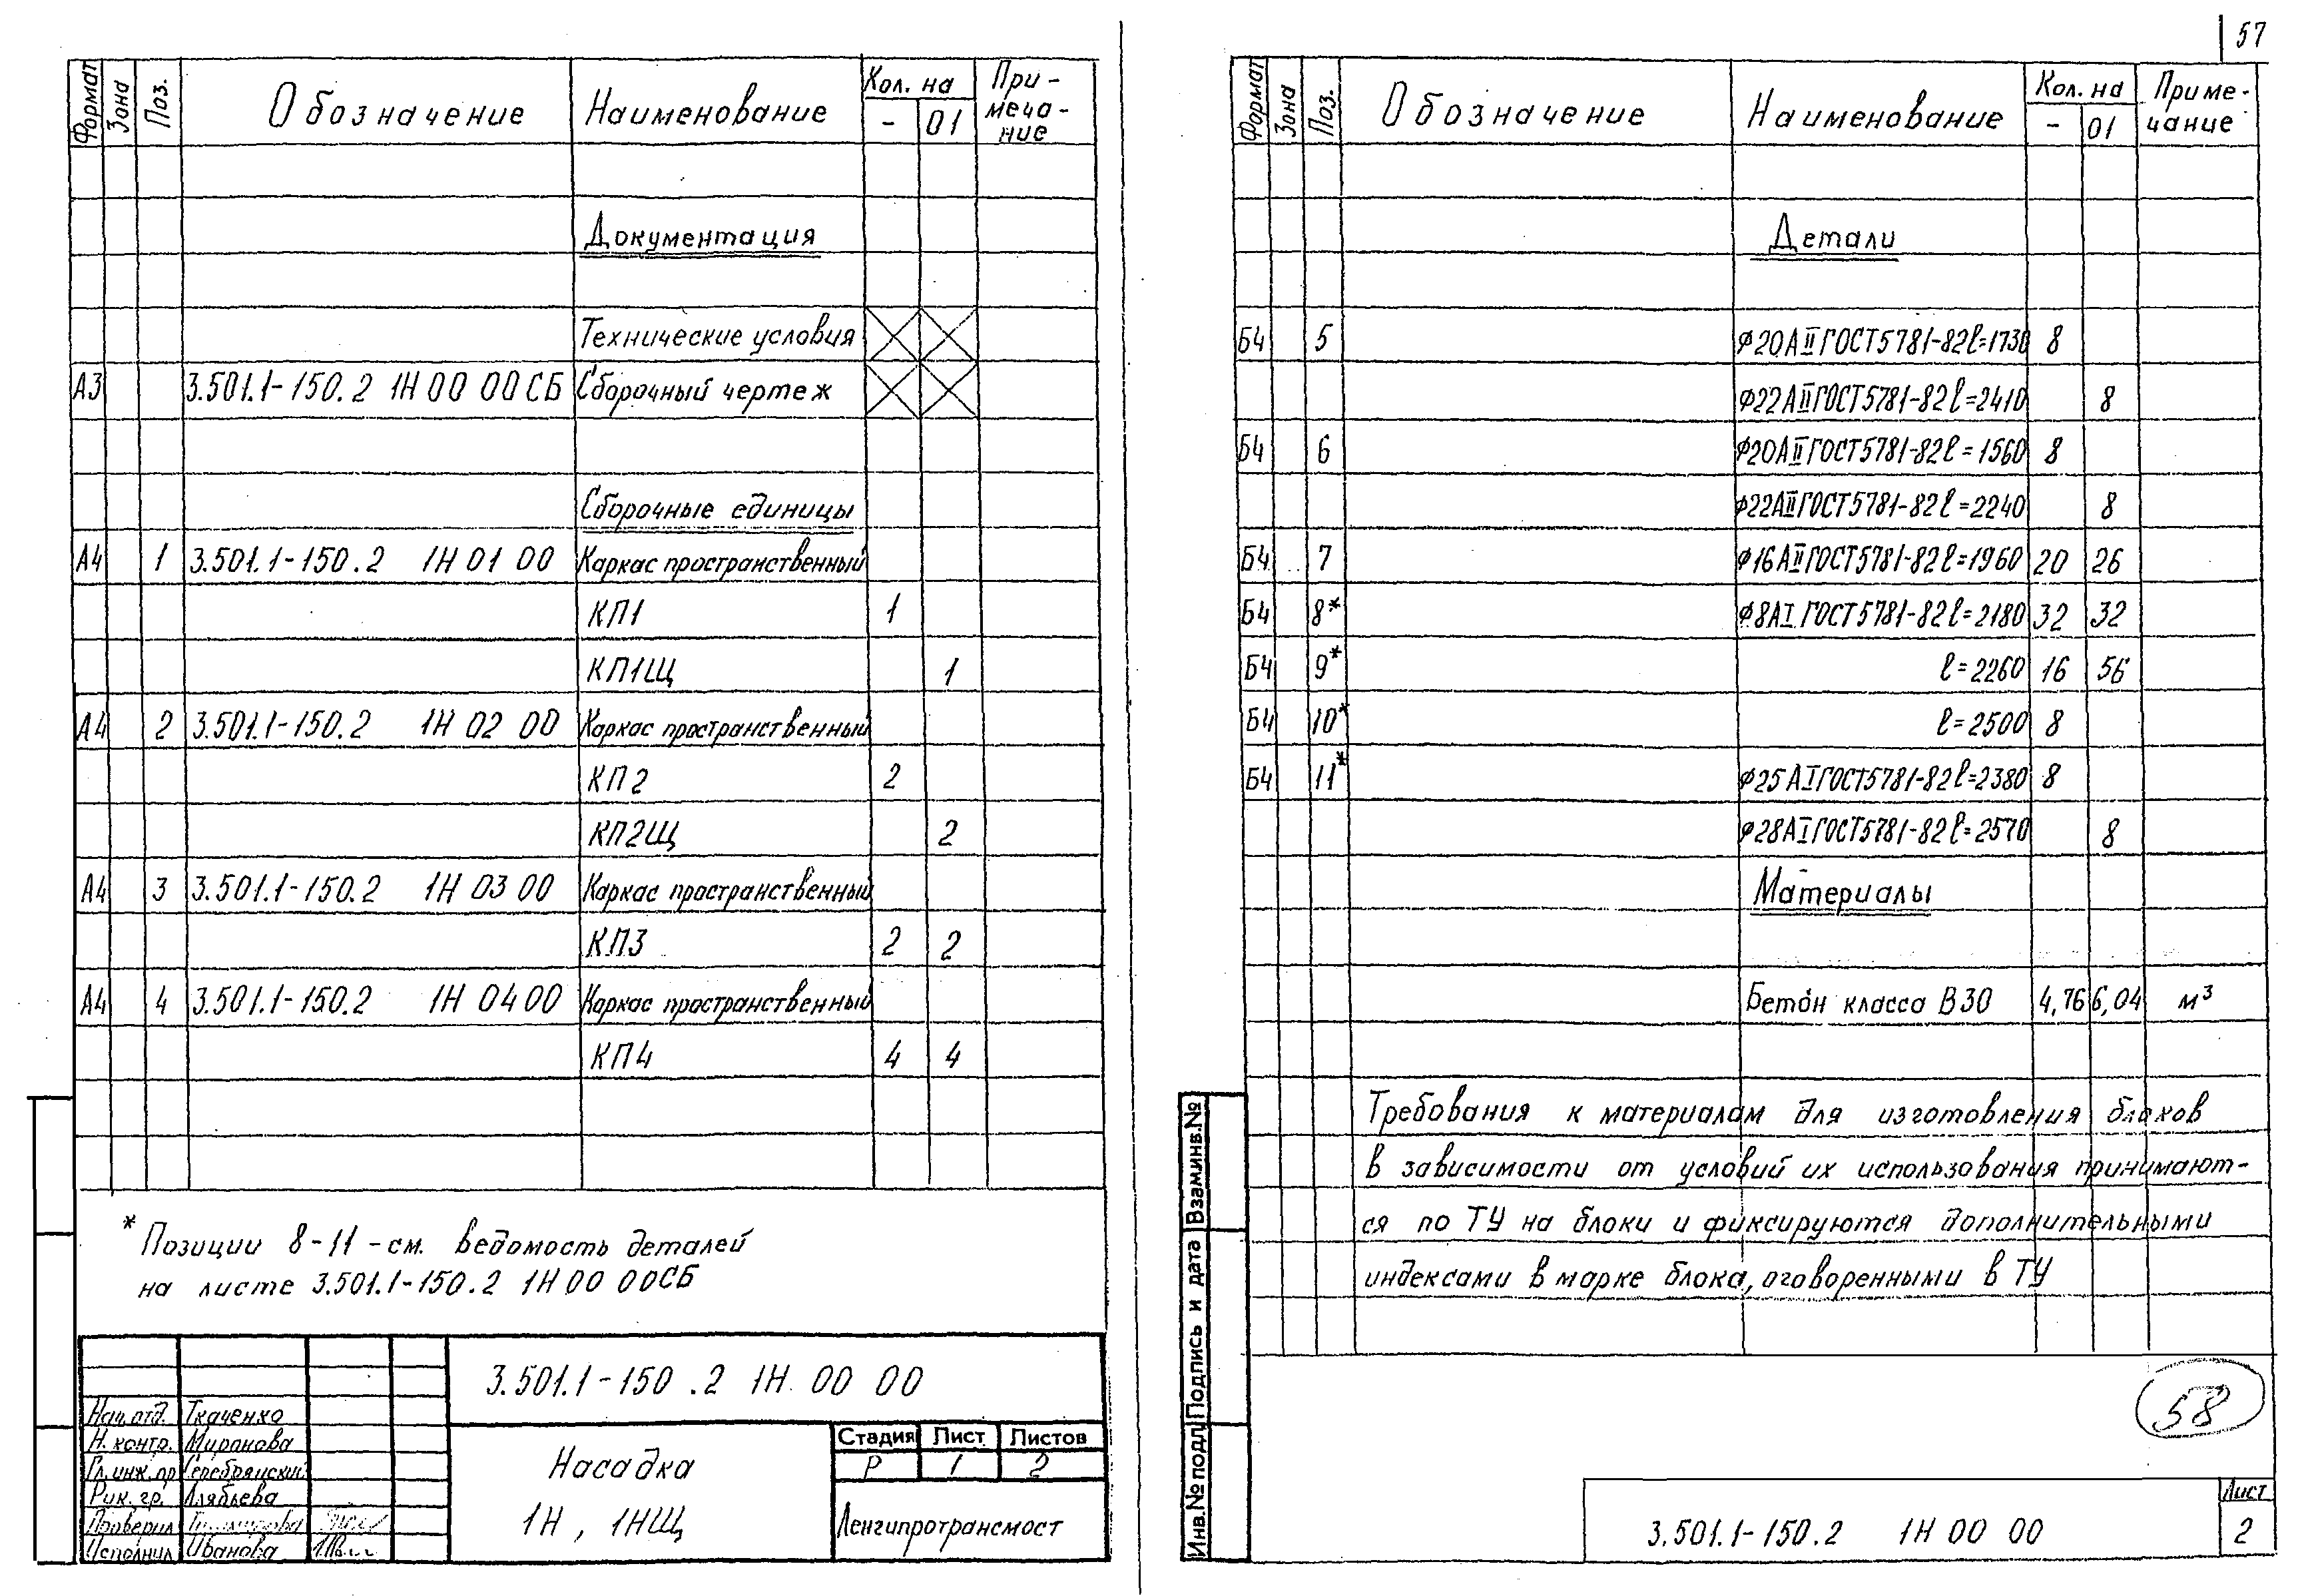 Формат Зона Поз. Обозначение Наименование Кол. на При-
меча-
ние
- 01
Документация
Технические условия
А3 3.501.1-150.2 1Н 00 00СБ Сборочный чертеж
Сборочные единицы
А4 1 3.501.1-150.2 1Н 01 00 Каркас пространственный
КП1 1
КП1Щ 1
А4 2 3.501.1-150.2 1Н 02 00 Каркас пространственный
КП2 2
КП2Щ 2
А4 3 3.501.1-150.2 1Н 03 00 Каркас пространственный
КП3 2 2
А4 4 3.501.1-150.2 1Н 04 00 Каркас пространственный
КП4 4 4
* Позиции 8-11 - см. ведомость деталей
на листе 3.501.1-150.2 1Н 00 00СБ
3.501.1-150.2 1Н 00 00
Нач. отд. Ткаченко
Н. контр. Миронова
Гл. инж. пр. Серебрянский
Рук. гр. Алябьева
Проверил
Исполнил Иванова
Насадка
1Н, 1НЩ
Стадия Лист Листов
Р 1 2
Ленгипротрансмост
57
Формат Зона Поз. Обозначение Наименование Кол. на Приме-
чание
- 01
Детали
Б4 5 Ф20АII ГОСТ5781-82 l=1730 8
Ф22АII ГОСТ5781-82 l=2410 8
Б4 6 Ф20АII ГОСТ5781-82 l=1560 8
Ф22АII ГОСТ5781-82 l=2240 8
Б4 7 Ф16АII ГОСТ5781-82 l=1960 20 26
Б4 8* Ф8АI ГОСТ5781-82 l=2180 32 32
Б4 9* l=2260 16 56
Б4 10* l=2500 8
Б4 11* Ф25АI ГОСТ5781-82 l=2380 8
Ф28АI ГОСТ5781-82 l=2570 8
Материалы
Бетон класса В30 4,76 6,04 м³
Требования к материалам для изготовления блоков
в зависимости от условий их использования принимают-
ся по ТУ на блоки и фиксируются дополнительными
индексами в марке блока, оговоренными в ТУ
58
Инв.№ подл Подпись и дата Взам.инв.№
3.501.1-150.2 1Н 00 00
Лист
2